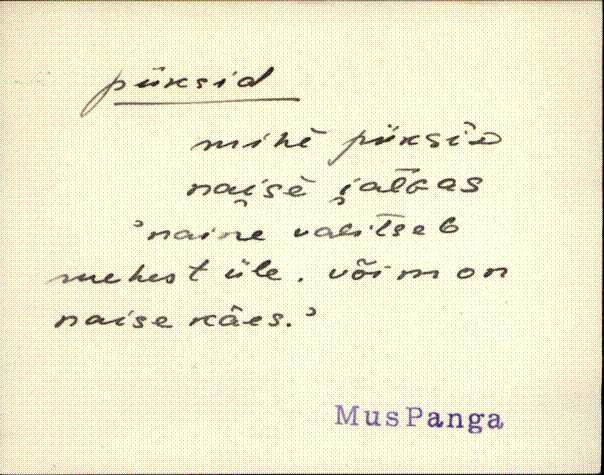 püksid
mihē püksiᴅ
nai̯sē i̯alGas
'naine valitseb
mehest üle. võim on
naise käes.'
MusPanga